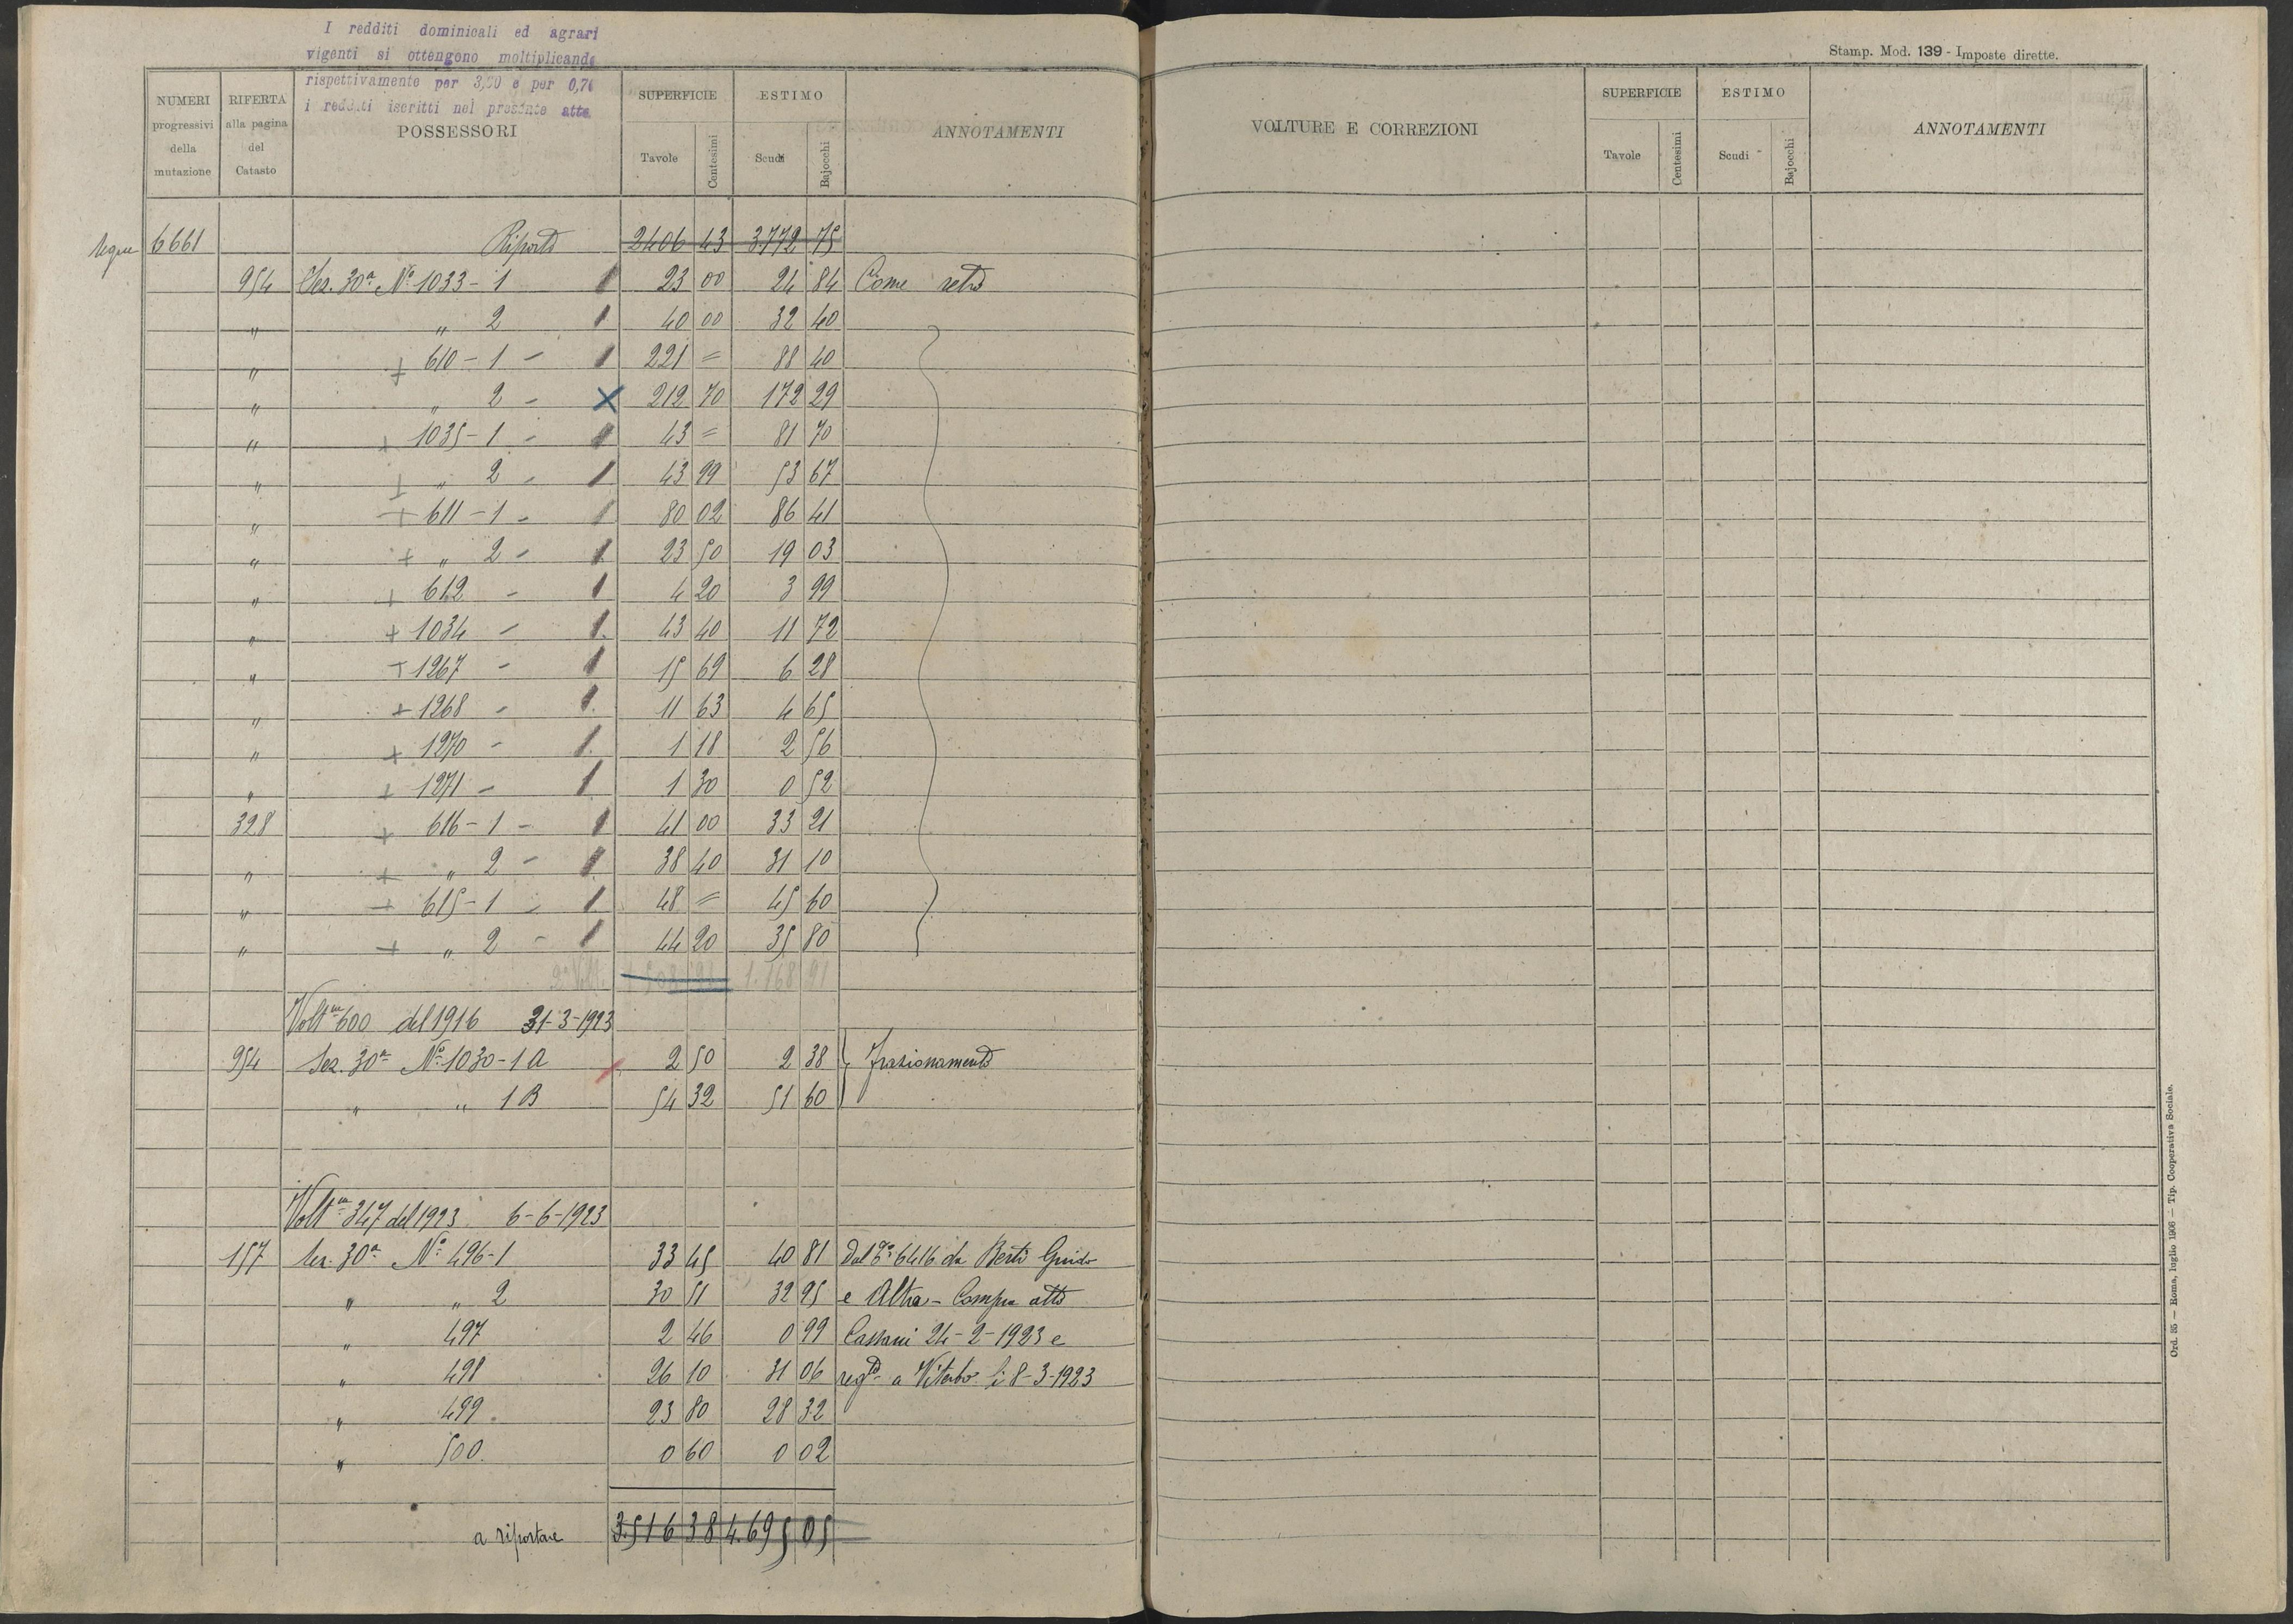 I redditi dominicali ed agrari
vigenti si ottengono moltiplicando
rispettivamente per 3,50 e per 0,70
i redditi iscritti nel presente atto
Stamp. Mod. 139 - Imposte dirette.
NUMERI progressivi della mutazione RIFERTA alla pagina del Catasto POSSESSORI SUPERFICIE Tavole Centesimi ESTIMO Scudi Bajocchi ANNOTAMENTI
VOLTURE E CORREZIONI SUPERFICIE Tavole Centesimi ESTIMO Scudi Bajocchi ANNOTAMENTI
segue 6661 Riporto 2406 43 3772 75
954 Sez. 30ª Nº 1033-1 1 23 00 24 84 Come retro
" " 2 1 40 00 32 40
" + 610-1 - 1 221 = 88 40
" " 2 - X 212 70 172 29
" + 1035-1 - 1 43 = 81 70
" + " 2 - 1 43 99 53 67
" + 611-1 - 1 80 02 86 41
" + " 2 - 1 23 50 19 03
" + 612 - 1 4 20 3 99
" + 1034 - 1 43 40 11 72
" + 1267 - 1 15 69 6 28
" + 1268 - 1 11 63 4 65
" + 1270 - 1 1 18 2 56
" + 1271 - 1 1 30 0 52
328 + 616-1 - 1 41 00 33 21
" + " 2 - 1 38 40 31 10
" + 615-1 - 1 48 = 45 60
" + " 2 - 1 44 20 35 80
1.168 91
Volt.ª 600 del 1916 31-3-1923
954 Sez. 30ª Nº 1030-1A 2 50 2 38 frazionamento
" " 1B 54 32 51 60
Volt.ª 347 del 1923 6-6-1923
157 Sez. 30ª Nº 496-1 33 45 40 81 Dal Nº 6416 da Berti Guido
" " 2 30 51 32 95 e Altra - Compra atto
" 497 2 46 0 99 Cassani 24-2-1923 e
" 498 26 10 31 06 regto a Viterbo li 8-3-1923
" 499 23 80 28 32
" 500 0 60 0 02
a riportare 3.516 38 4.695 05
Ord. 35 — Roma, luglio 1906 — Tip. Cooperativa Sociale.